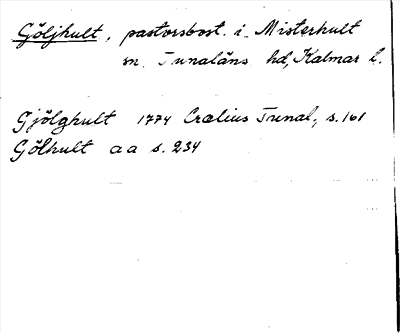 Göljhult, pastorsbost. i Misterhult
sn. Tunaläns hd, Kalmar l.
Gjölghult 1774 Crælius Tunal., s. 161
Gölhult aa s. 234